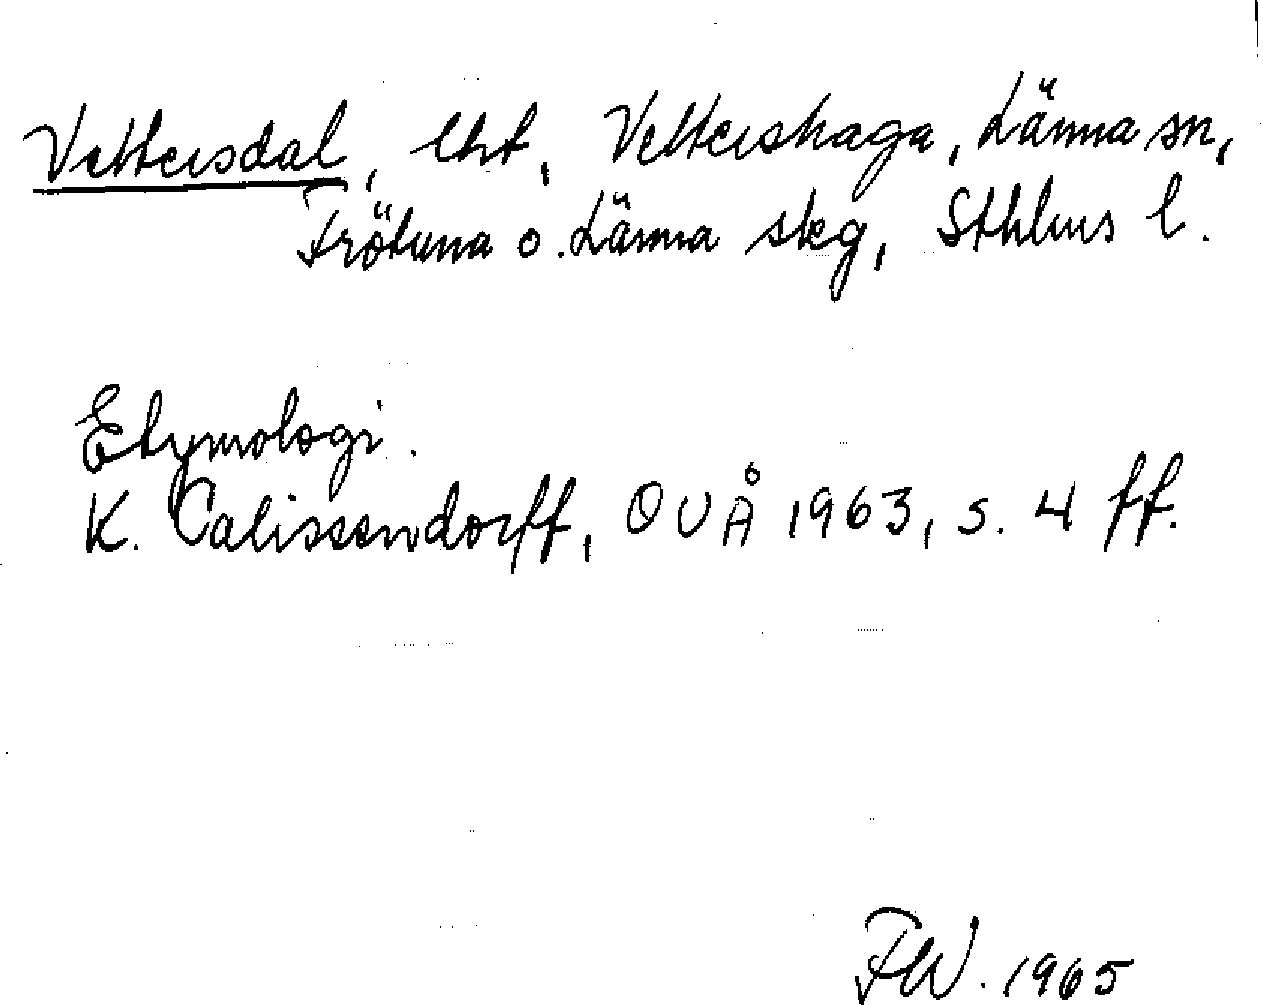 Vettersdal, lht, Vettershaga, Länna sn,
Frötuna o. Länna skg, Sthlms l.
Etymologi.
K. Calissendorff, OUÅ 1963, s. 4 ff.
FW. 1965